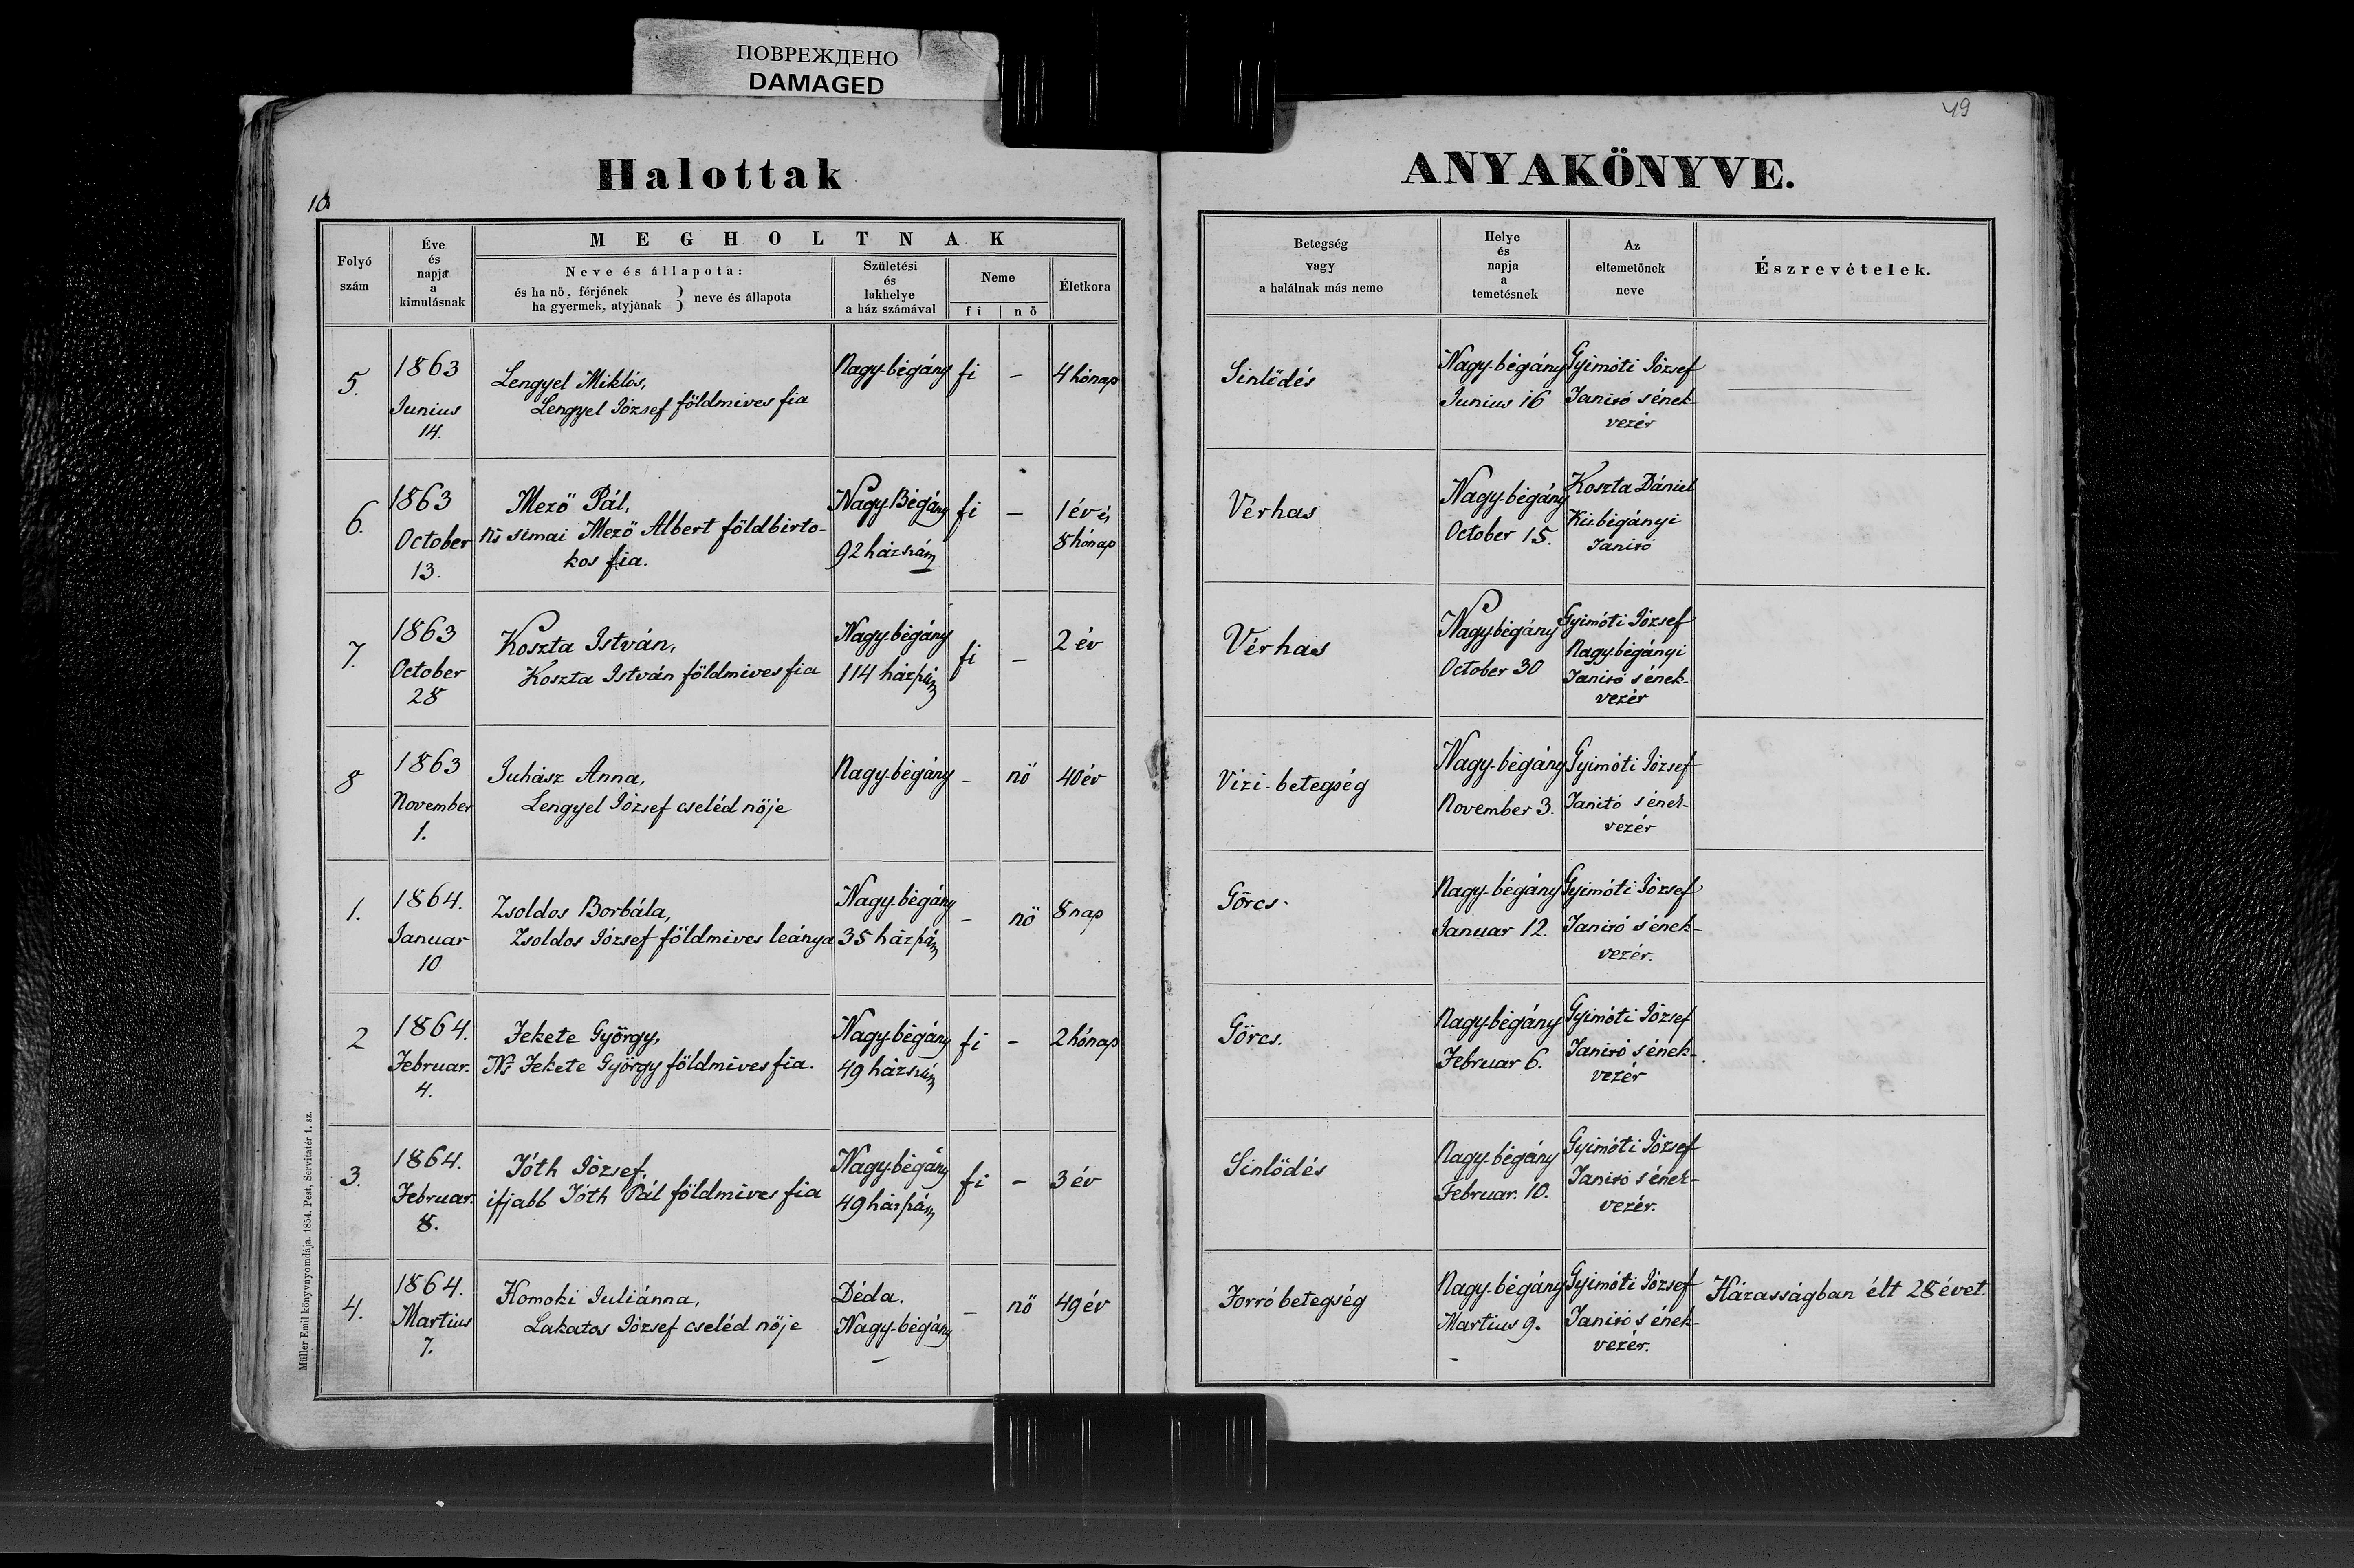 ПОВРЕЖДЕНО
DAMAGED
49
Halottak
ANYAKÖNYVE.
10
Folyó szám
Éve és napja a kimulásnak
MEGHOLTNAK
Neve és állapota:
és ha nő, férjének
ha gyermek, atyjának } neve és állapota
Születési és lakhelye a ház számával
Neme
fi | nő
Életkora
Betegség vagy a halálnak más neme
Helye és napja a temetésnek
Az eltemetőnek neve
Észrevételek.
5.
1863
Junius
14.
Lengyel Miklós,
Lengyel József földmives fia
Nagy-bégány
fi
–
4 hónap
Sinlődés
Nagy-bégány
Junius 16
Gyimóti József
Tanító s ének-
vezér
6.
1863
October
13.
Mező Pál,
Ns simai Mező Albert földbirto-
kos fia.
Nagy-Bégány
92 házszám
fi
–
1 év és
8 hónap
Vérhas
Nagy-bégány
October 15.
Koszta Dániel
Kis-bégányi
Tanító
7.
1863
October
28
Koszta István,
Koszta István földmives fia
Nagy-bégány
114 házszám
fi
–
2 év
Vérhas
Nagy-bégány
October 30
Gyimóti József
Nagy-bégányi
Tanító s ének-
vezér
8
1863
November
1.
Juhász Anna,
Lengyel József cseléd nője
Nagy-bégány
–
nő
40 év
Vizi-betegség
Nagy-bégány
November 3.
Gyimóti József
Tanító s ének-
vezér
1.
1864.
Januar
10
Zsoldos Borbála,
Zsoldos József földmives leánya
Nagy-bégány
35 házszám
–
nő
8 nap
Görcs.
Nagy-bégány
Januar 12.
Gyimóti József
Tanító s ének-
vezér.
2
1864.
Februar.
4.
Fekete György,
Ns Fekete György földmives fia.
Nagy-bégány
49 házszám
fi
–
2 hónap
Görcs.
Nagy-bégány
Februar 6.
Gyimóti József
Tanító s ének-
vezér
3.
1864.
Februar.
8.
Tóth József,
ifjabb Tóth Pál földmives fia
Nagy-bégány
49 házszám
fi
–
3 év
Sinlődés
Nagy-bégány
Februar. 10.
Gyimóti József
Tanító s ének-
vezér.
4.
1864.
Martius
7.
Homoki Juliánna,
Lakatos József cseléd nője
Déda.
Nagy-bégány
–
nő
49 év
Forró betegség
Nagy-bégány
Martius 9.
Gyimóti József
Tanító s ének-
vezér.
Házasságban élt 28 évet.
Müller Emil könyvnyomdája. 1854. Pest, Servitatér 1. sz.